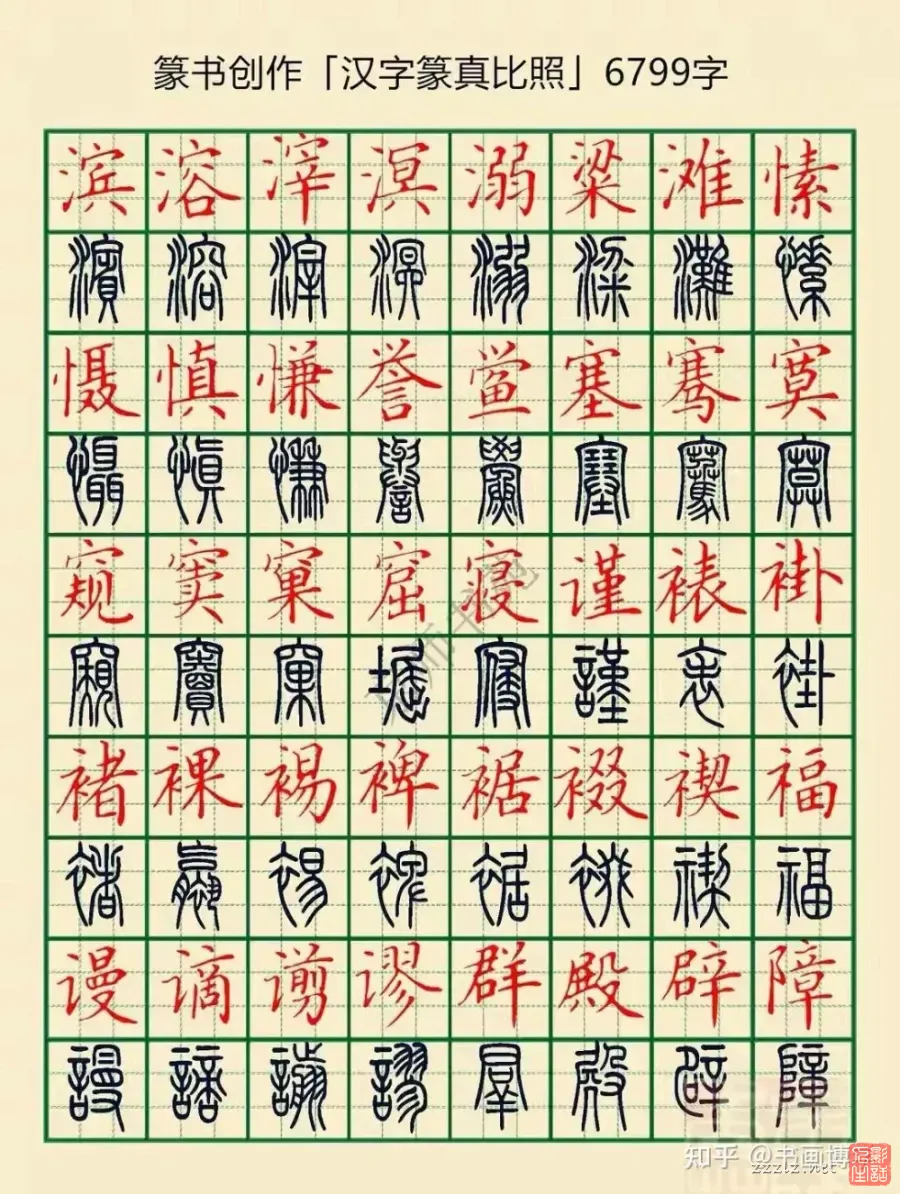 篆书创作「汉字篆真比照」6799字
滨溶滓溟溺粱滩愫
濱溶滓溟溺粱灘愫
慑慎慊誉鲎塞骞寞
懾慎慊譽鱟塞騫寞
窥窦窠窟寝谨裱褂
窺竇窠堀寑謹表褂
褚裸裼裨裾裰褉福
褚臝裼裨裾裰禊福
谩谪谫谬群殿辟障
謾謫譾謬羣殿辟障
知乎 @书画博
zzzlz.net